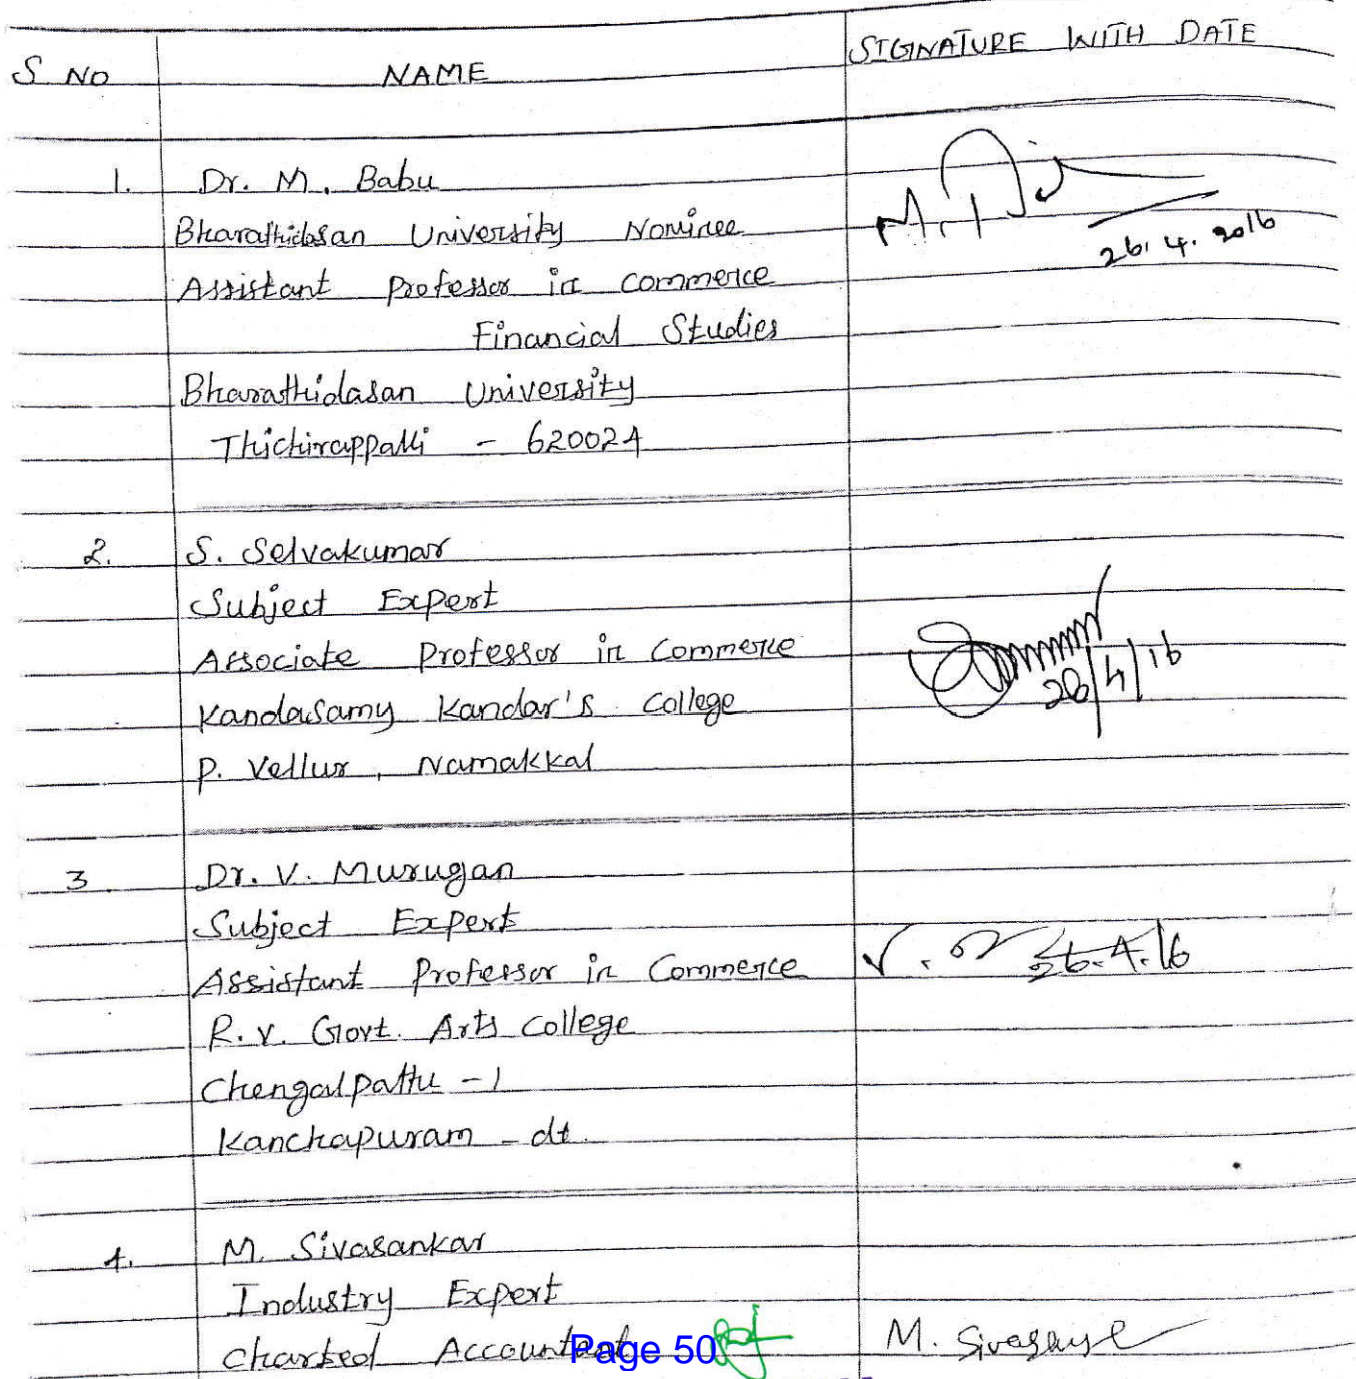 S NO NAME SIGNATURE WITH DATE
1. Dr. M. Babu
Bharathidasan University Nominee
26.4.2016
Assistant Professor in Commerce
Financial Studies
Bharathidasan University
Thichirappalli - 620024
2. S. Selvakumar
Subject Expert
Associate Professor in Commerce
26/4/16
Kandasamy Kandar's College
P. Vellur, Namakkal
3. Dr. V. Murugan
Subject Expert
Assistant Professor in Commerce V. 26.4.16
R.V. Govt. Arts College
Chengalpattu - 1
Kanchapuram - dt.
4. M. Sivasankar
Industry Expert
Charted Accountant M.
Page 50